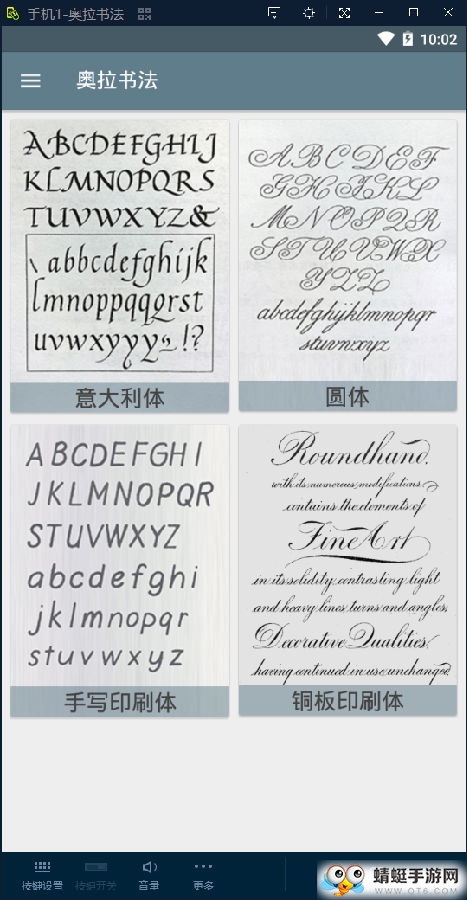 手机1-奥拉书法
10:02
奥拉书法
ABCDEFGHIJ
KLMNOPQRS
TUVWXYZ&
abbcdefghijk
lmnoppqqqrst
uvwxyyyy!?
意大利体
ABCDEF
GHIJKL
MNOPQR
STUVWX
YZZ
abcdefghijklmnopqr
stuvwxyz
圆体
ABCDEFGHI
JKLMNOPQR
STUVWXYZ
abcdefghi
jklmnopqr
stuvwxyz
手写印刷体
Roundhand,
with its numerous modifications
contains the elements of
Fine Art
in its solidity, contrasting light
and heavy lines, turns and angles.
Decorative Qualities,
having continued in use unchanged
铜板印刷体
按键设置 按键开关 音量 更多
蜻蜓手游网
WWW.QT6.COM